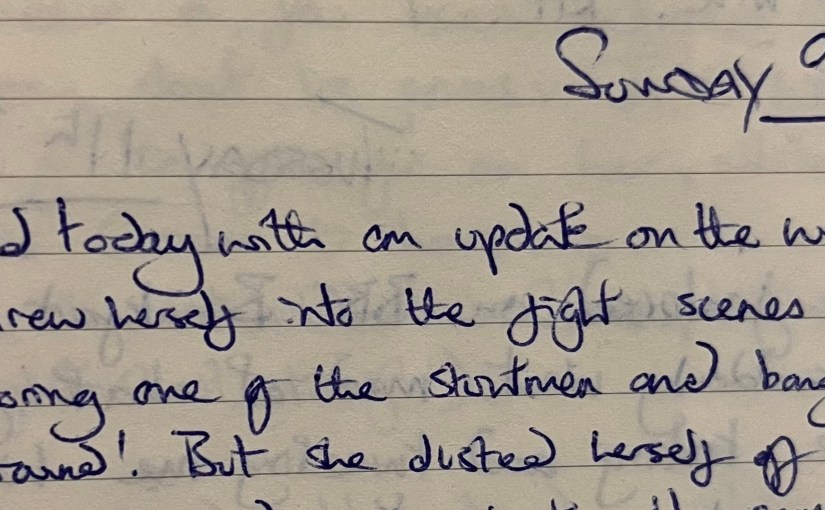 Sunday
today with an update on the
herself into the fight scenes
one of the stuntmen and
But she dusted herself off